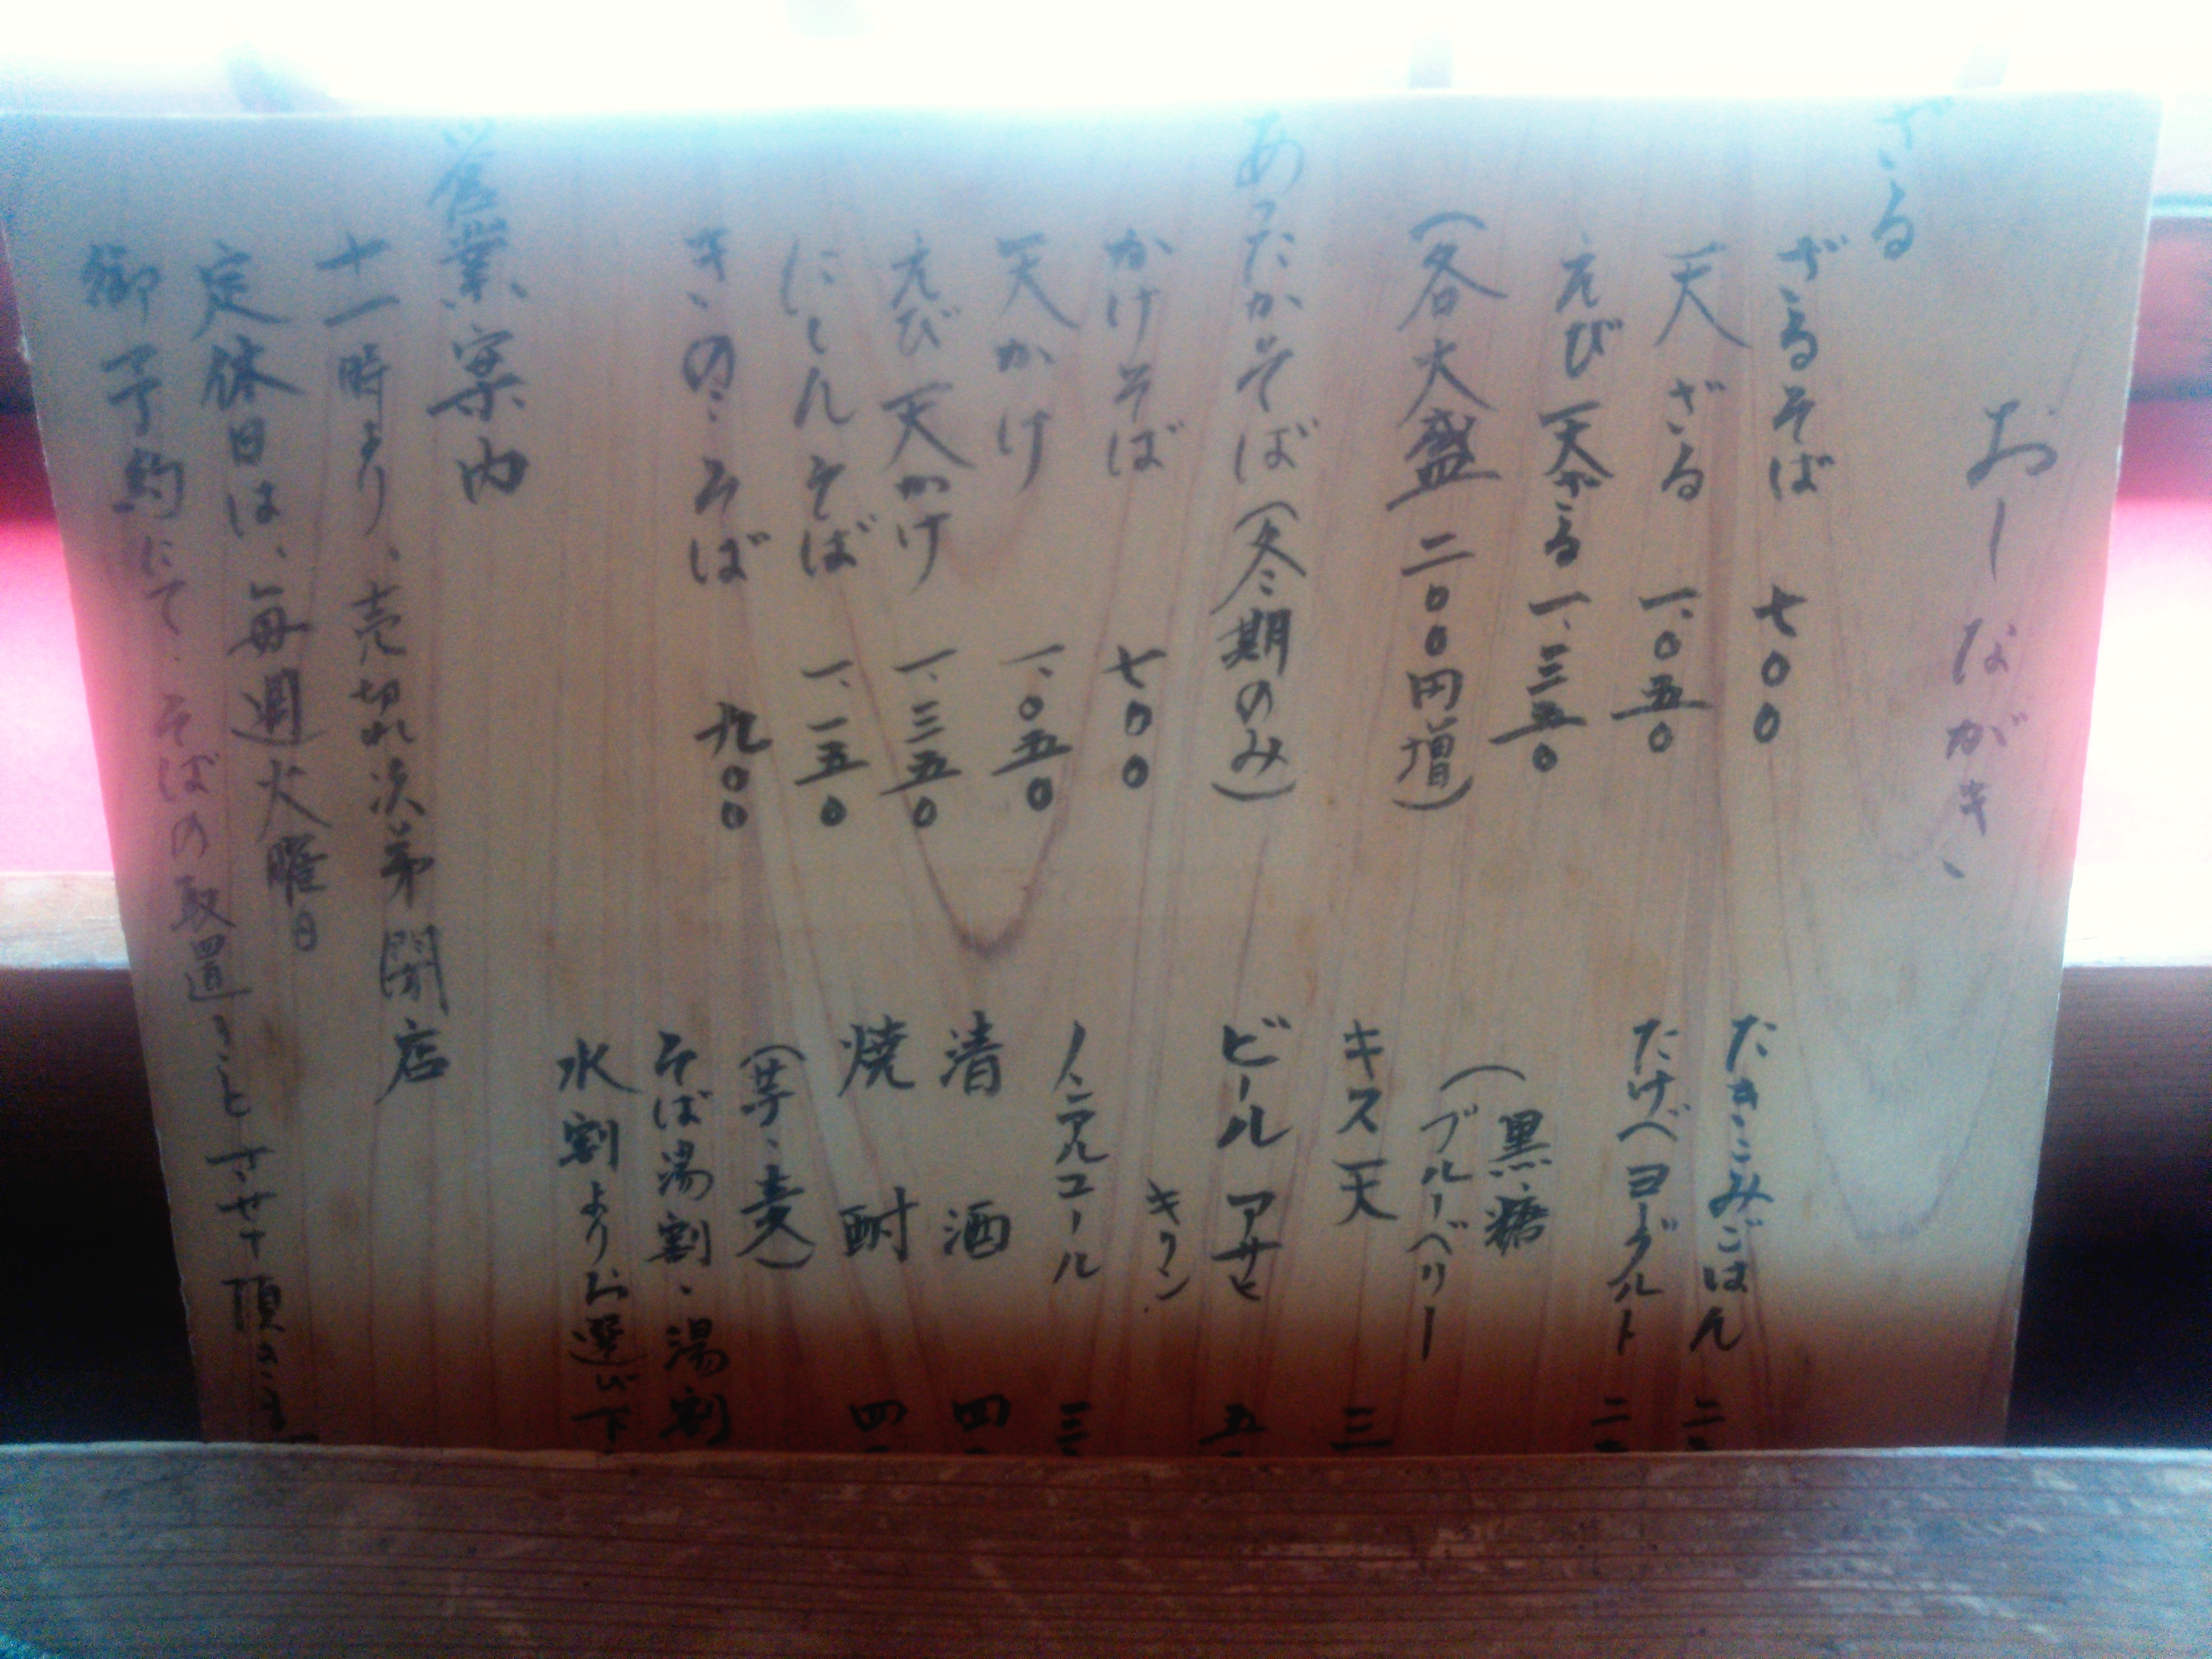 おしながき
ざる
ざるそば 七〇〇
天ざる 一、〇五〇
えび天ざる 一、三五〇
(各大盛 二〇〇円増)
あったかそば(冬期のみ)
かけそば 七〇〇
天かけ 一、〇五〇
えび天かけ 一、三五〇
にしんそば 一、一五〇
きのこそば 九〇〇
たきこみごはん 二
たけべヨーグルト 二
(黒糖
ブルーベリー
キス天 三
ビール アサヒ 五
キリン
ノンアルコール 三
清酒 四
焼酎 四
(芋、麦)
そば湯割、湯割
水割よりお選び下
営業案内
十一時より、売切れ次第閉店
定休日は、毎週火曜日
御予約にて、そばの取置きとさせて頂きま